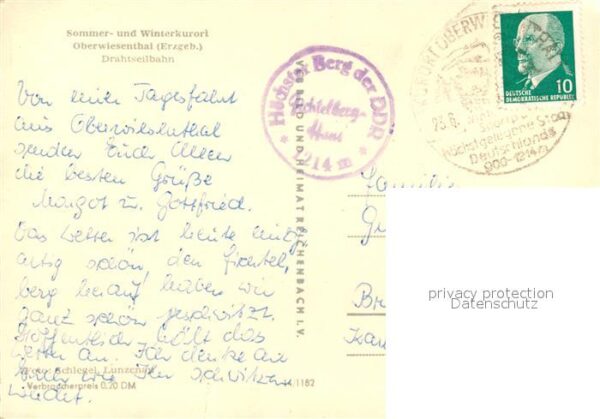 Sommer- und Winterkurort
Oberwiesenthal (Erzgeb.)
Drahtseilbahn
Von einer Tagesfahrt
aus Oberwiesenthal
senden Euch Allen
die besten Grüße
Margot u. Gottfried.
Das Wetter ist heute
artig schön, den Fichtel,
berg herauf haben wir
ganz schön geschwitzt.
Hoffentlich hält das
Wetter an. Ich denke
Ihr schwitzen
werdet.
Foto: Schlegel, Lunzenau
Verbraucherpreis 0,20 DM
1182
VERLAG BILD UND HEIMAT REICHENBACH I. V.
Höchster Berg der DDR
Fichtelberg-
Haus
* 1214 m *
KURORT OBERWIESENTHAL
23.6.
höchstgelegene Stadt
Deutschlands
900-1214m
10
DEUTSCHE
DEMOKRATISCHE REPUBLIK
Familie
Br
privacy protection
Datenschutz